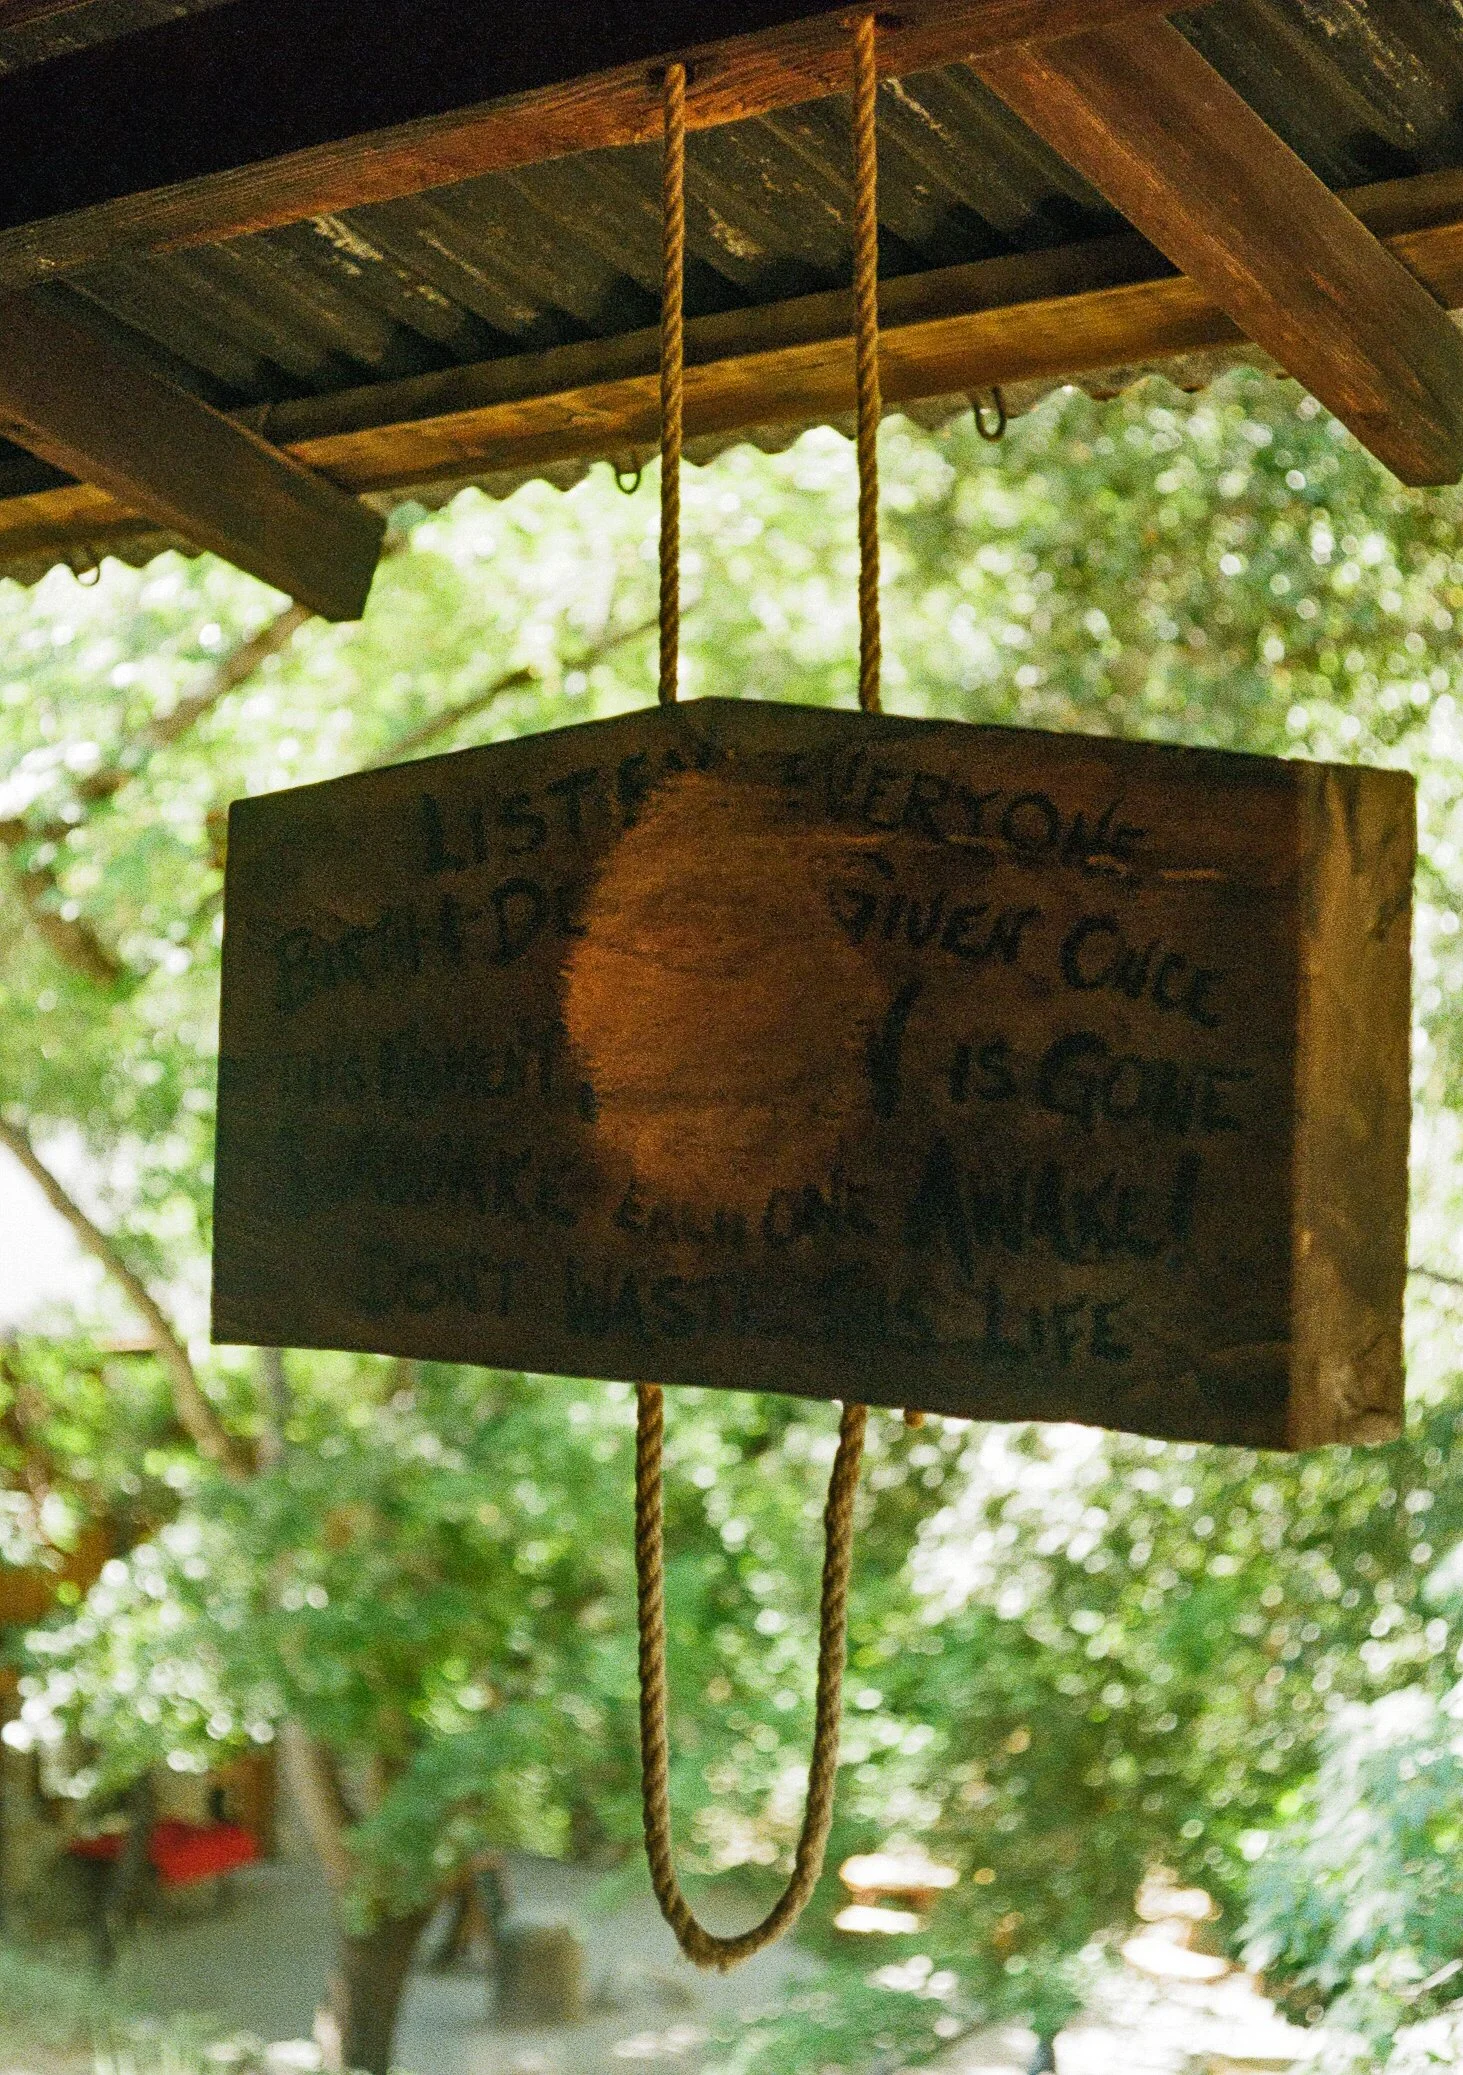 LISTEN EVERYONE
BIRTH & DE GIVEN ONCE
THIS MOMENT, IS GONE
AWAKE EACH ONE AWAKE!
DON'T WASTE THIS LIFE